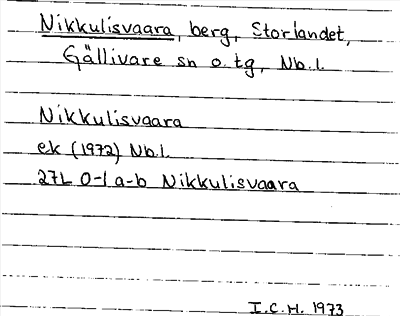 Nikkulisvaara, berg, Storlandet,
Gällivare sn o. tg, Nb. l.
Nikkulisvaara
ek (1972) Nb.l.
27L 0-1 a-b Nikkulisvaara
I.C.H. 1973